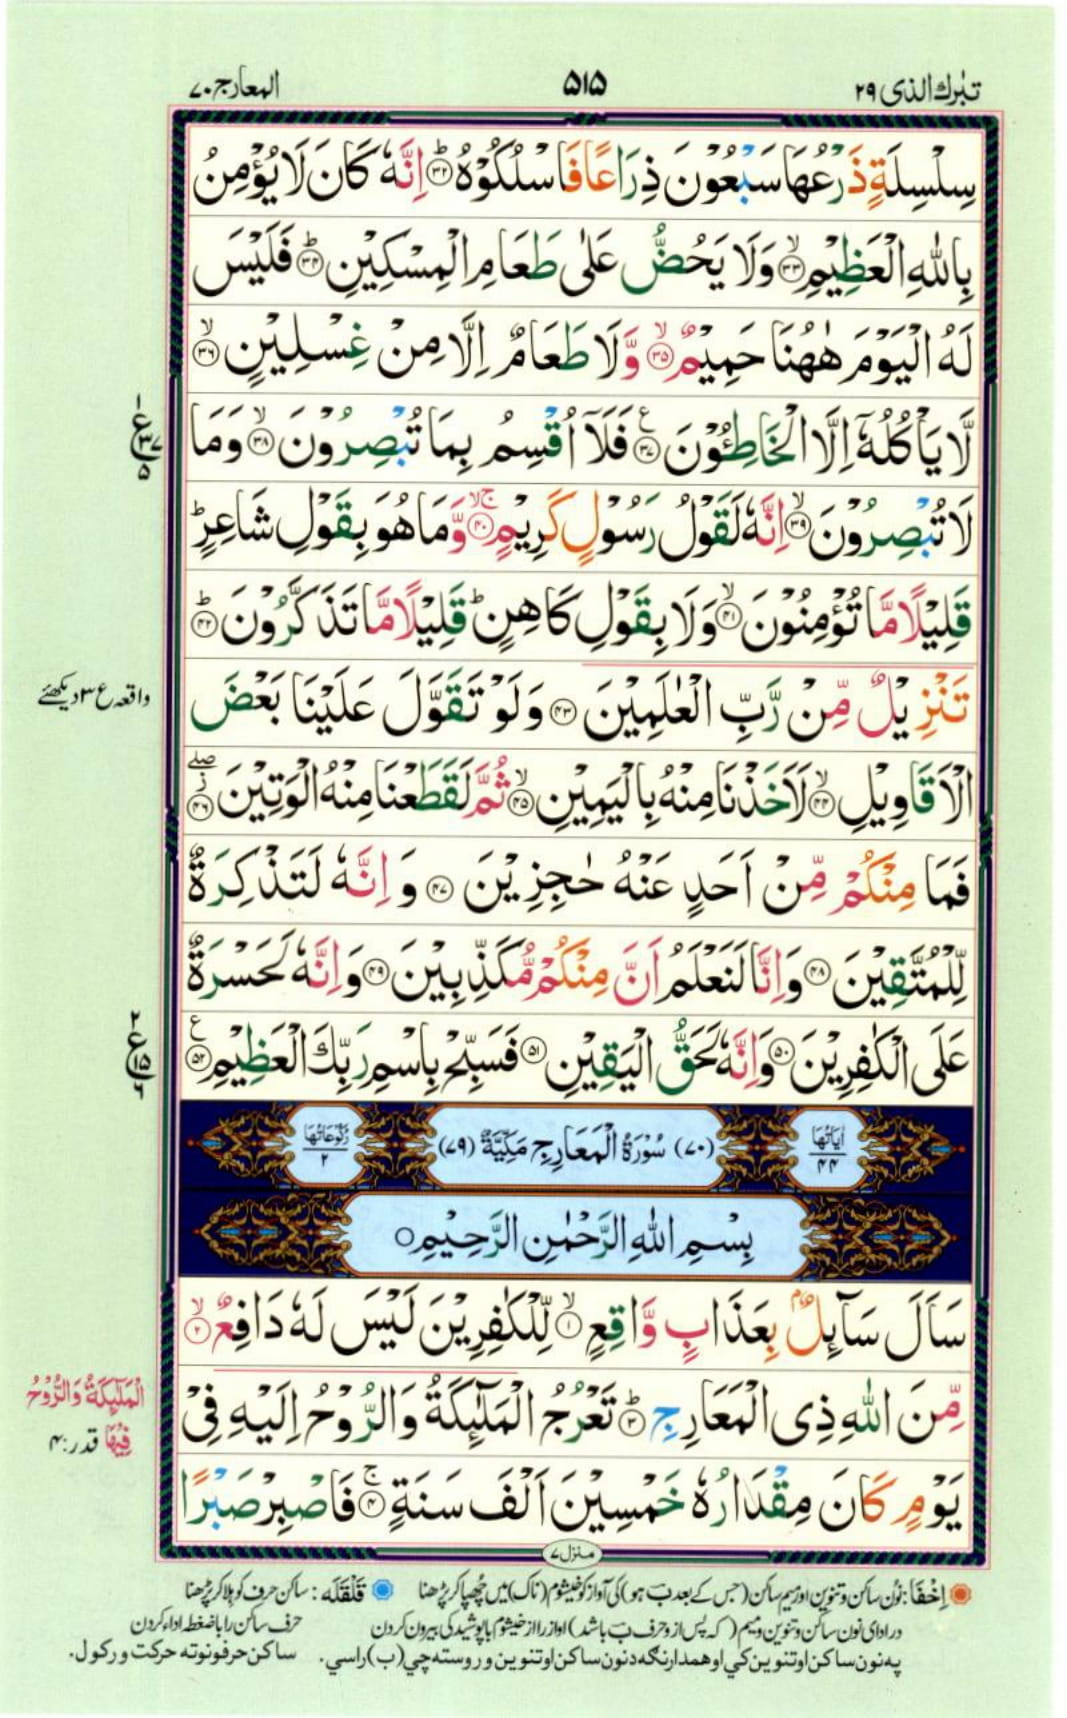 تبٰرك الذى ٢٩
۵۱۵
المعارج ٧٠
سِلْسِلَةٍ ذَرْعُهَا سَبْعُوْنَ ذِرَاعًا فَاسْلُكُوْهُ ؕ﴿۳۲﴾ اِنَّهٗ كَانَ لَا يُؤْمِنُ
بِاللّٰهِ الْعَظِيْمِ ۙ﴿۳۳﴾ وَلَا يَحُضُّ عَلٰى طَعَامِ الْمِسْكِيْنِ ؕ﴿۳۴﴾ فَلَيْسَ
لَهُ الْيَوْمَ هٰهُنَا حَمِيْمٌ ۙ﴿۳۵﴾ وَّلَا طَعَامٌ اِلَّا مِنْ غِسْلِيْنٍ ۙ﴿۳۶﴾
لَّا يَاْكُلُهٗۤ اِلَّا الْخَاطِـُٔوْنَ ﴿۳۷﴾ع فَلَاۤ اُقْسِمُ بِمَا تُبْصِرُوْنَ ۙ﴿۳۸﴾ وَمَا
لَا تُبْصِرُوْنَ ۙ﴿۳۹﴾ اِنَّهٗ لَقَوْلُ رَسُوْلٍ كَرِيْمٍ ۚۙ﴿۴۰﴾ وَّمَا هُوَ بِقَوْلِ شَاعِرٍ ؕ
قَلِيْلًا مَّا تُؤْمِنُوْنَ ۙ﴿۴۱﴾ وَلَا بِقَوْلِ كَاهِنٍ ؕ قَلِيْلًا مَّا تَذَكَّرُوْنَ ؕ﴿۴۲﴾
تَنْزِيْلٌ مِّنْ رَّبِّ الْعٰلَمِيْنَ ﴿۴۳﴾ وَلَوْ تَقَوَّلَ عَلَيْنَا بَعْضَ
الْاَقَاوِيْلِ ۙ﴿۴۴﴾ لَاَخَذْنَا مِنْهُ بِالْيَمِيْنِ ۙ﴿۴۵﴾ ثُمَّ لَقَطَعْنَا مِنْهُ الْوَتِيْنَ ۖز﴿۴۶﴾
فَمَا مِنْكُمْ مِّنْ اَحَدٍ عَنْهُ حٰجِزِيْنَ ﴿۴۷﴾ وَ اِنَّهٗ لَتَذْكِرَةٌ
لِّلْمُتَّقِيْنَ ﴿۴۸﴾ وَاِنَّا لَنَعْلَمُ اَنَّ مِنْكُمْ مُّكَذِّبِيْنَ ﴿۴۹﴾ وَاِنَّهٗ لَحَسْرَةٌ
عَلَى الْكٰفِرِيْنَ ﴿۵۰﴾ وَاِنَّهٗ لَحَقُّ الْيَقِيْنِ ﴿۵۱﴾ فَسَبِّحْ بِاسْمِ رَبِّكَ الْعَظِيْمِ ﴿۵۲﴾ع
اٰيَاتُهَا ۴۴
(٧٠) سُوْرَةُ الْمَعَارِجِ مَكِّيَّةٌ (٧٩)
رُكُوْعَاتُهَا ٢
بِسْمِ اللّٰهِ الرَّحْمٰنِ الرَّحِيْمِ ○
سَاَلَ سَآئِلٌۢ بِعَذَابٍ وَّاقِعٍ ۙ﴿۱﴾ لِّلْكٰفِرِيْنَ لَيْسَ لَهٗ دَافِعٌ ۙ﴿۲﴾
مِّنَ اللّٰهِ ذِى الْمَعَارِجِ ؕ﴿۳﴾ تَعْرُجُ الْمَلٰٓئِكَةُ وَالرُّوْحُ اِلَيْهِ فِىْ
يَوْمٍ كَانَ مِقْدَارُهٗ خَمْسِيْنَ اَلْفَ سَنَةٍ ۚ﴿۴﴾ فَاصْبِرْ صَبْرًا
منزل ٧
۱
ع ۳۷
۵
واقعہ ع ۳ دیکھئے
۲
ع ۱۵
۲
الْمَلٰٓئِكَةُ وَالرُّوْحُ
فِيْهَا قدر: ۴
اِخْفَا: نُون ساکن و تنوین اور میم ساکن (جس کے بعد بَ ہو) کی آواز کو خیشوم (ناک) میں چھپا کر پڑھنا
قَلْقَلَه: ساکن حرف کو ہلا کر پڑھنا
در ادای نون ساکن و تنوین و میم (که پس از و حرف بَ باشد) اواز را از خیشوم با پوشیدگی بیرون کردن
حرف ساکن را با ضغط اداء کردن
په نون ساكن او تنوين كي او همدارنگه د نون ساكن او تنوين و روسته چي (ب) راسي.
ساكن حرفونو ته حركت وركول.